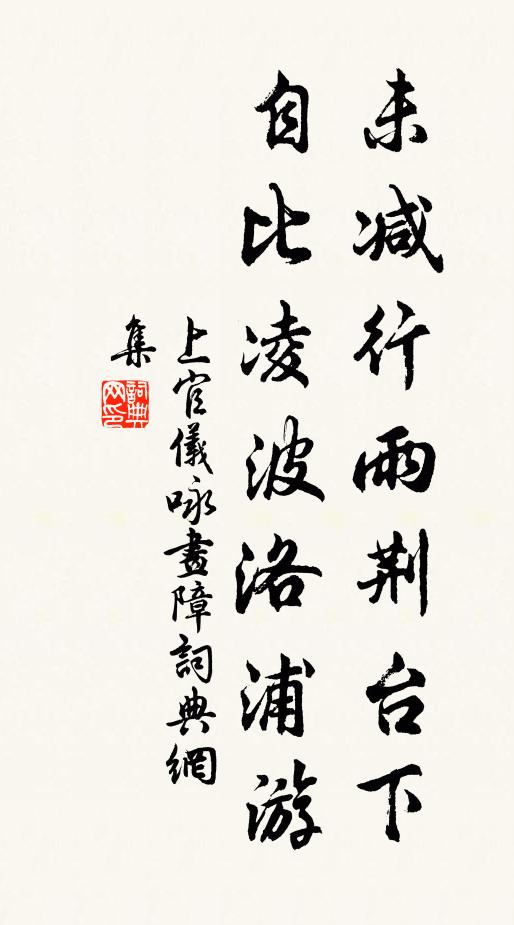 未减行雨荆台下
自比凌波洛浦游
上官儀咏畫障詞典網
集
詞典
网印